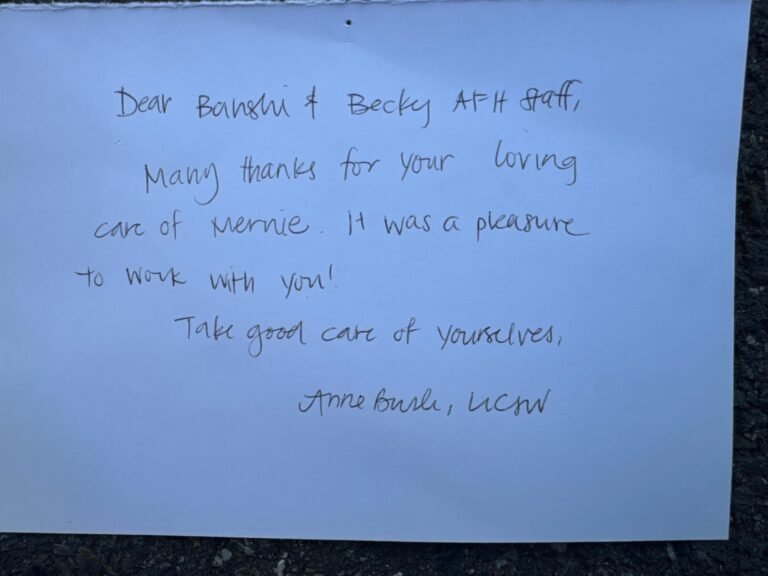 Dear Banshi & Becky AFH staff,
Many thanks for your loving
care of Mernie. It was a pleasure
to work with you!
Take good care of yourselves,
Anne Bush, LICSW